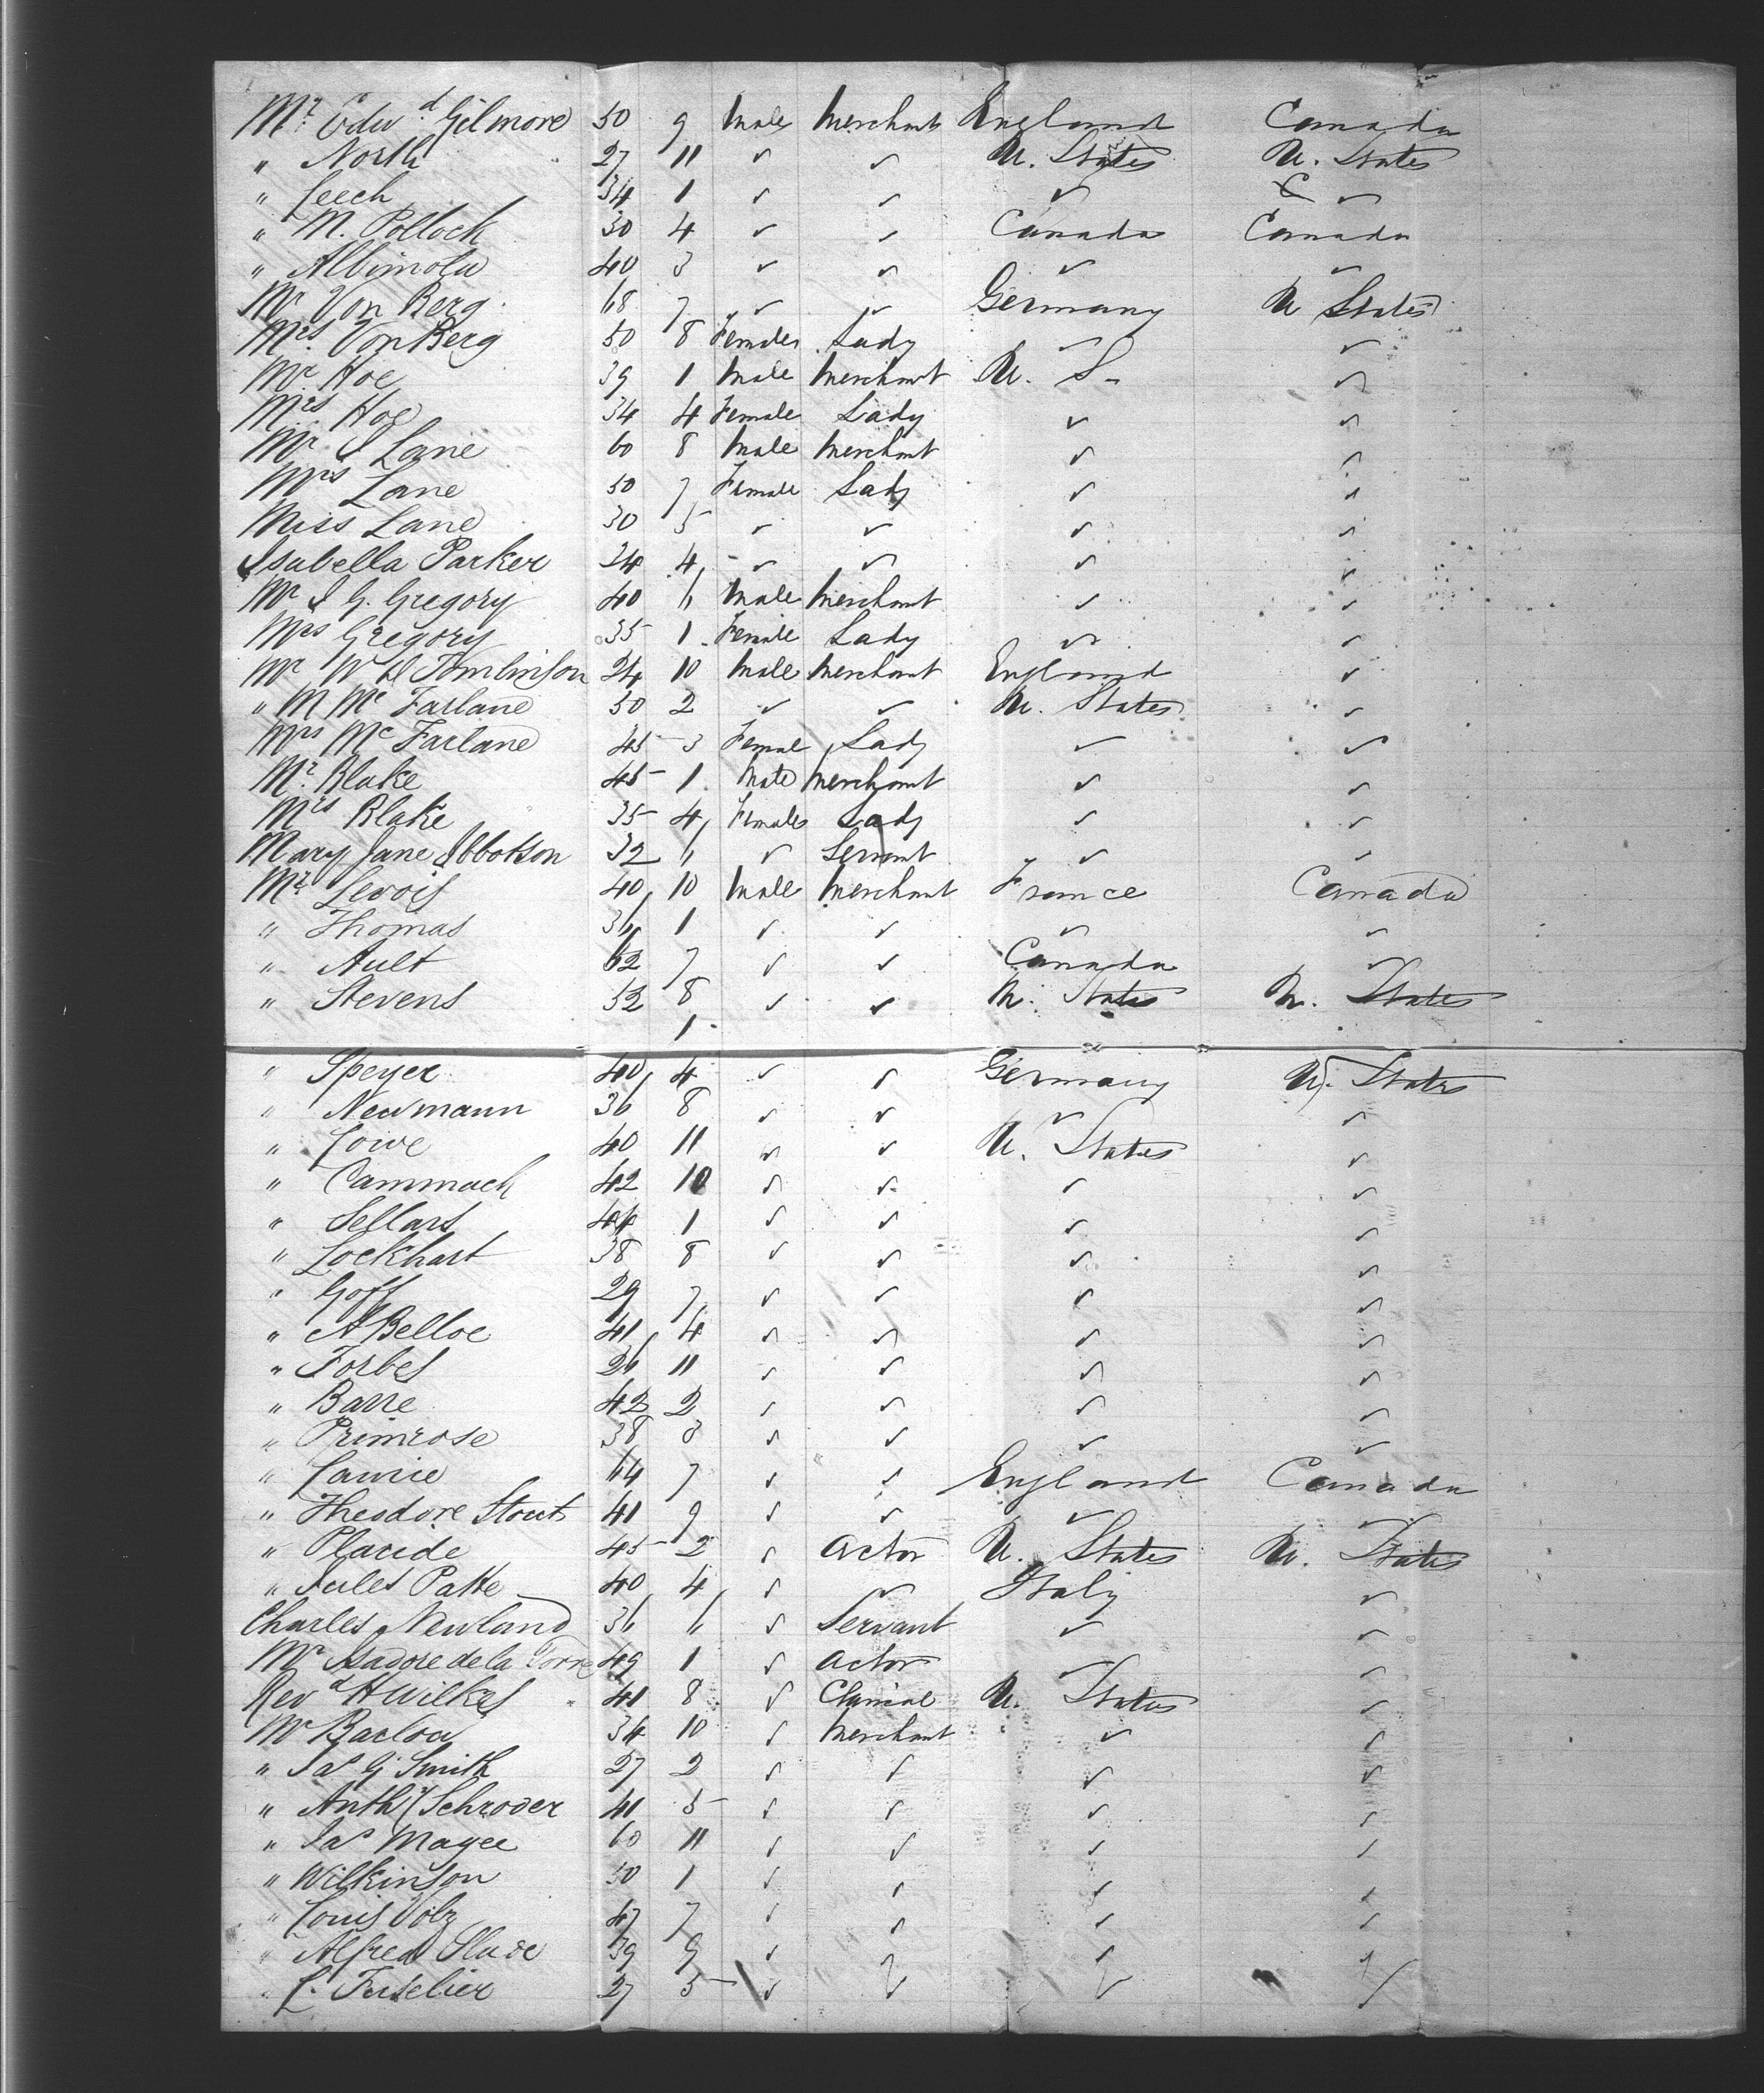 Mr. Edwd. Gilmore 50 9 Male Merchant England Canada
" North 27 11 ✓ ✓ U. States U. States
" Leech 34 1 ✓ ✓ ✓ C ✓
" M. Pollock 30 4 ✓ ✓ Canada Canada
" 40 3 ✓ ✓ ✓ ✓
Mr Von Berg 68 7 ✓ ✓ Germany U States
Mrs. Von Berg 50 8 Female Lady ✓ ✓
Mr Hoe 39 1 Male Merchant U. S. ✓
Mrs Hoe 34 4 Female Lady ✓ ✓
Mr S Lane 60 8 Male Merchant ✓ ✓
Mrs Lane 50 7 Female Lady ✓ ✓
Miss Lane 30 5 ✓ ✓ ✓ ✓
Isabella Parker 24 4 ✓ ✓ ✓ ✓
Mr S G. Gregory 40 6 Male Merchant ✓ ✓
Mrs Gregory 35 1 Female Lady ✓ ✓
Mr W Tomlinson 24 10 Male Merchant England ✓
" M Mc Farlane 50 2 ✓ ✓ U. States ✓
Mrs Mc Farlane 45 3 Female Lady ✓ ✓
Mr. Blake 45 1 Male Merchant ✓ ✓
Mrs Blake 35 4 Female Lady ✓ ✓
Mary Jane Ibbotson 32 6 ✓ Servant ✓ ✓
Mr. Levois 40 10 Male Merchant France Canada
" Thomas 36 1 ✓ ✓ ✓ ✓
" Ault 62 7 ✓ ✓ Canada ✓
" Stevens 52 8 ✓ ✓ U. States U. States
1
" Speyer 40 4 ✓ ✓ Germany U. States
" Newmann 36 8 ✓ ✓ ✓ ✓
" Lowe 40 11 ✓ ✓ U. States ✓
" Cammack 42 10 ✓ ✓ ✓ ✓
" Sellars 44 1 ✓ ✓ ✓ ✓
" Lockhart 38 8 ✓ ✓ ✓ ✓
" Goff 29 7 ✓ ✓ ✓ ✓
" A Belloc 41 4 ✓ ✓ ✓ ✓
" Forbes 26 11 ✓ ✓ ✓ ✓
" Barre 42 2 ✓ ✓ ✓ ✓
" Primrose 38 3 ✓ ✓ ✓ ✓
" Lawrie 64 7 ✓ ✓ England Canada
" Theodore Stout 41 9 ✓ ✓ ✓ ✓
" Placide 45 2 ✓ Actor U. States U. States
" Jules Patte 40 4 ✓ ✓ Italy ✓
Charles Newland 36 6 ✓ Servant ✓ ✓
Mr Isadore de la Torre 49 1 ✓ Actor ✓ ✓
Revd H Wilkes 41 8 ✓ U. States ✓
Mr Barlow 34 10 ✓ Merchant ✓ ✓
" Jas G Smith 27 2 ✓ ✓ ✓ ✓
" Anthy Schroder 41 5 ✓ ✓ ✓ ✓
" Jas Magee 60 11 ✓ ✓ ✓ ✓
" Wilkinson 50 1 ✓ ✓ ✓ ✓
" Louis Volz 47 7 ✓ ✓ ✓ ✓
" Alfred Slade 39 9 ✓ ✓ ✓ ✓
" L. Fuselier 27 5 ✓ ✓ ✓ ✓